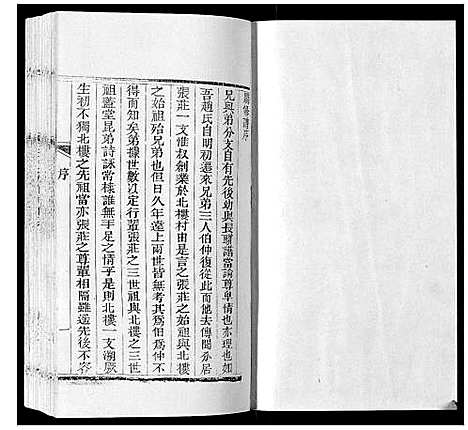 續修譜序
兄與弟分支自有先後幼與長聯譜當論尊卑情也亦理也
吾趙氏自明初遷來兄弟三人伯仲復從此而他去傳聞分居
張莊一支惟叔創業於北樓村由是言之張莊之始祖與北樓
之始祖殆兄弟也但日久年遠上兩世皆無考其爲伯爲仲不
得而知矣弟據世數以定行輩張莊之三世祖與北樓之三世
祖蓋堂昆弟詩詠常棣誰無手足之情乎是則北樓一支溯厥
生初不獨北樓之先祖當亦張莊之尊輩相隔雖遠先後不容
序
一